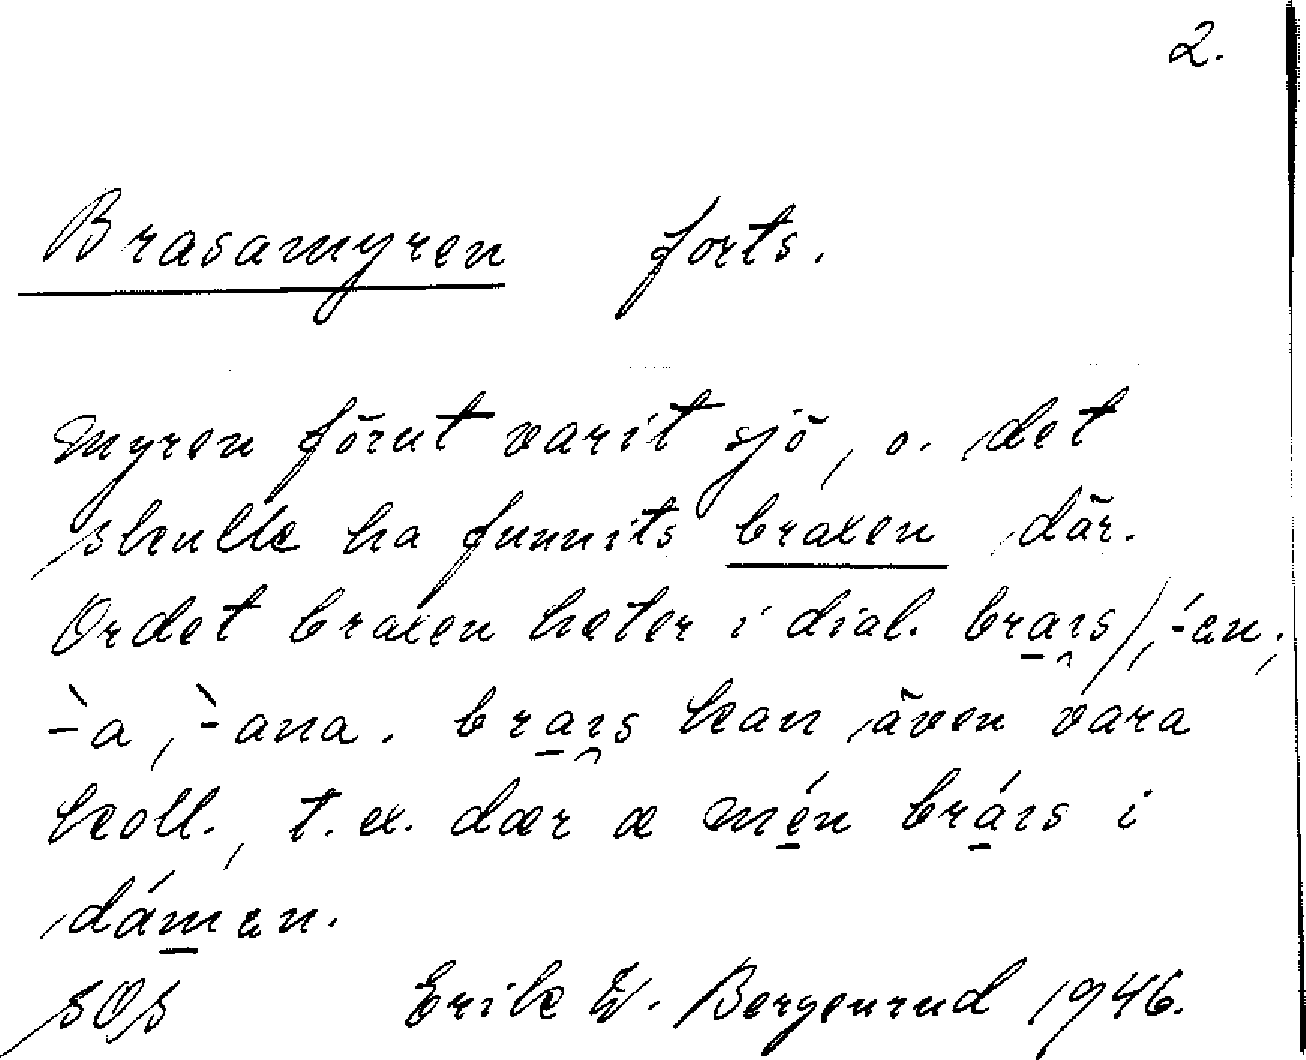 2.
Brasamyren forts.
myren förut varit sjö, o. det
skulle ha funnits braxen där.
Ordet braxen heter i dial.
-̀a, -̀ana. kan även vara
koll., t.ex. dær æ mén i
dámɐn.
SOS Erik W. Bergenrud 1946.